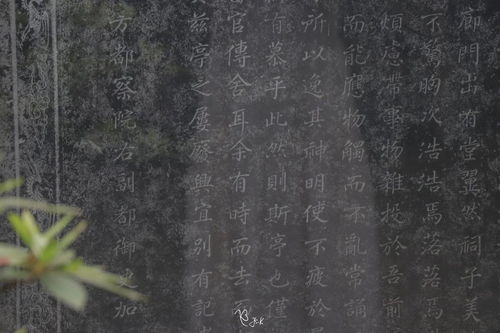 廊門出有堂翼然祠子美
不驚胸次浩浩焉落落焉
煩慮滯事物雜投於吾前
而能應物觸而不亂常誦
所以逸其神明使不疲於
有慕乎此然則斯亭也僅
官傳舍耳余有時而去
茲亭之屢廢興宜別有記
方都察院右副都御史加